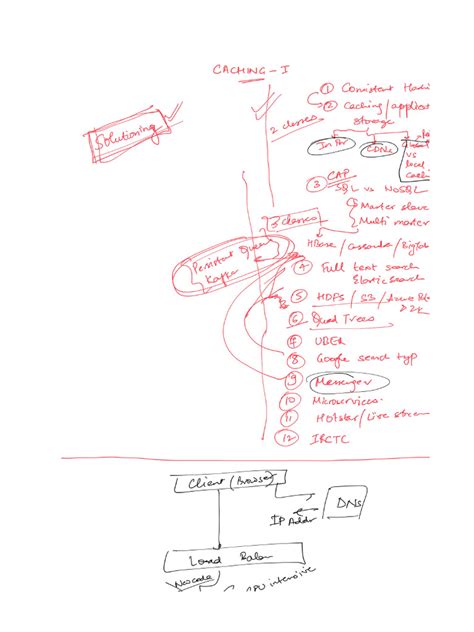 CACHING - I
Solutioning
2 classes
① Consistent Hashi
② Caching / applicat
storage
CDNs
vs
local
cachi
③ CAP
SQL vs NoSQL
Master slave
Multi master
3 classes
HBase / Cassandra / BigTab
Persistent Queue
Kafka
④ Full text search
Elastic search
⑤ HDFS / S3 / Azure Bl
⑥ Quad Trees
⑦ UBER
⑧ Google search typ
⑨ Messenger
⑩ Microservices
⑪ Hotstar / Live stream
⑫ IRCTC
Client (Browser)
DNS
IP Addr
Load Balan
CPU intensive